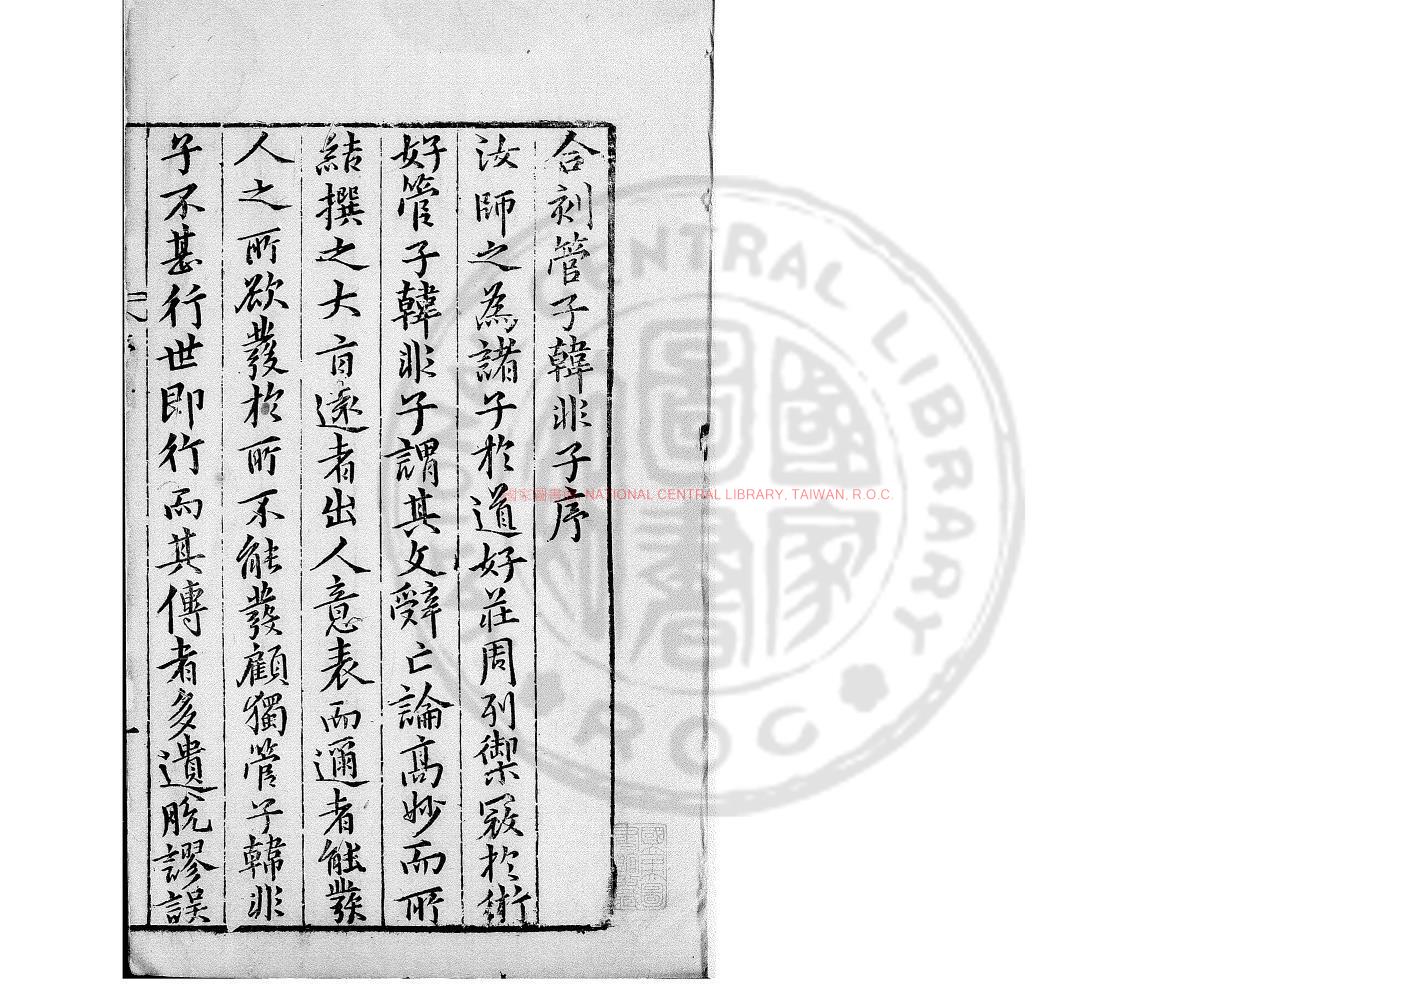 合刻管子韓非子序
汝師之為諸子於道好莊周列禦寇於術
好管子韓非子謂其文辭亡論高妙而所
結撰之大旨遠者出人意表而邇者能發
人之所欲發於所不能發顧獨管子韓非
子不甚行世即行而其傳者多遺脫謬誤
國家圖書館, NATIONAL CENTRAL LIBRARY, TAIWAN, R.O.C.
NATIONAL CENTRAL LIBRARY
R O C
國家圖書